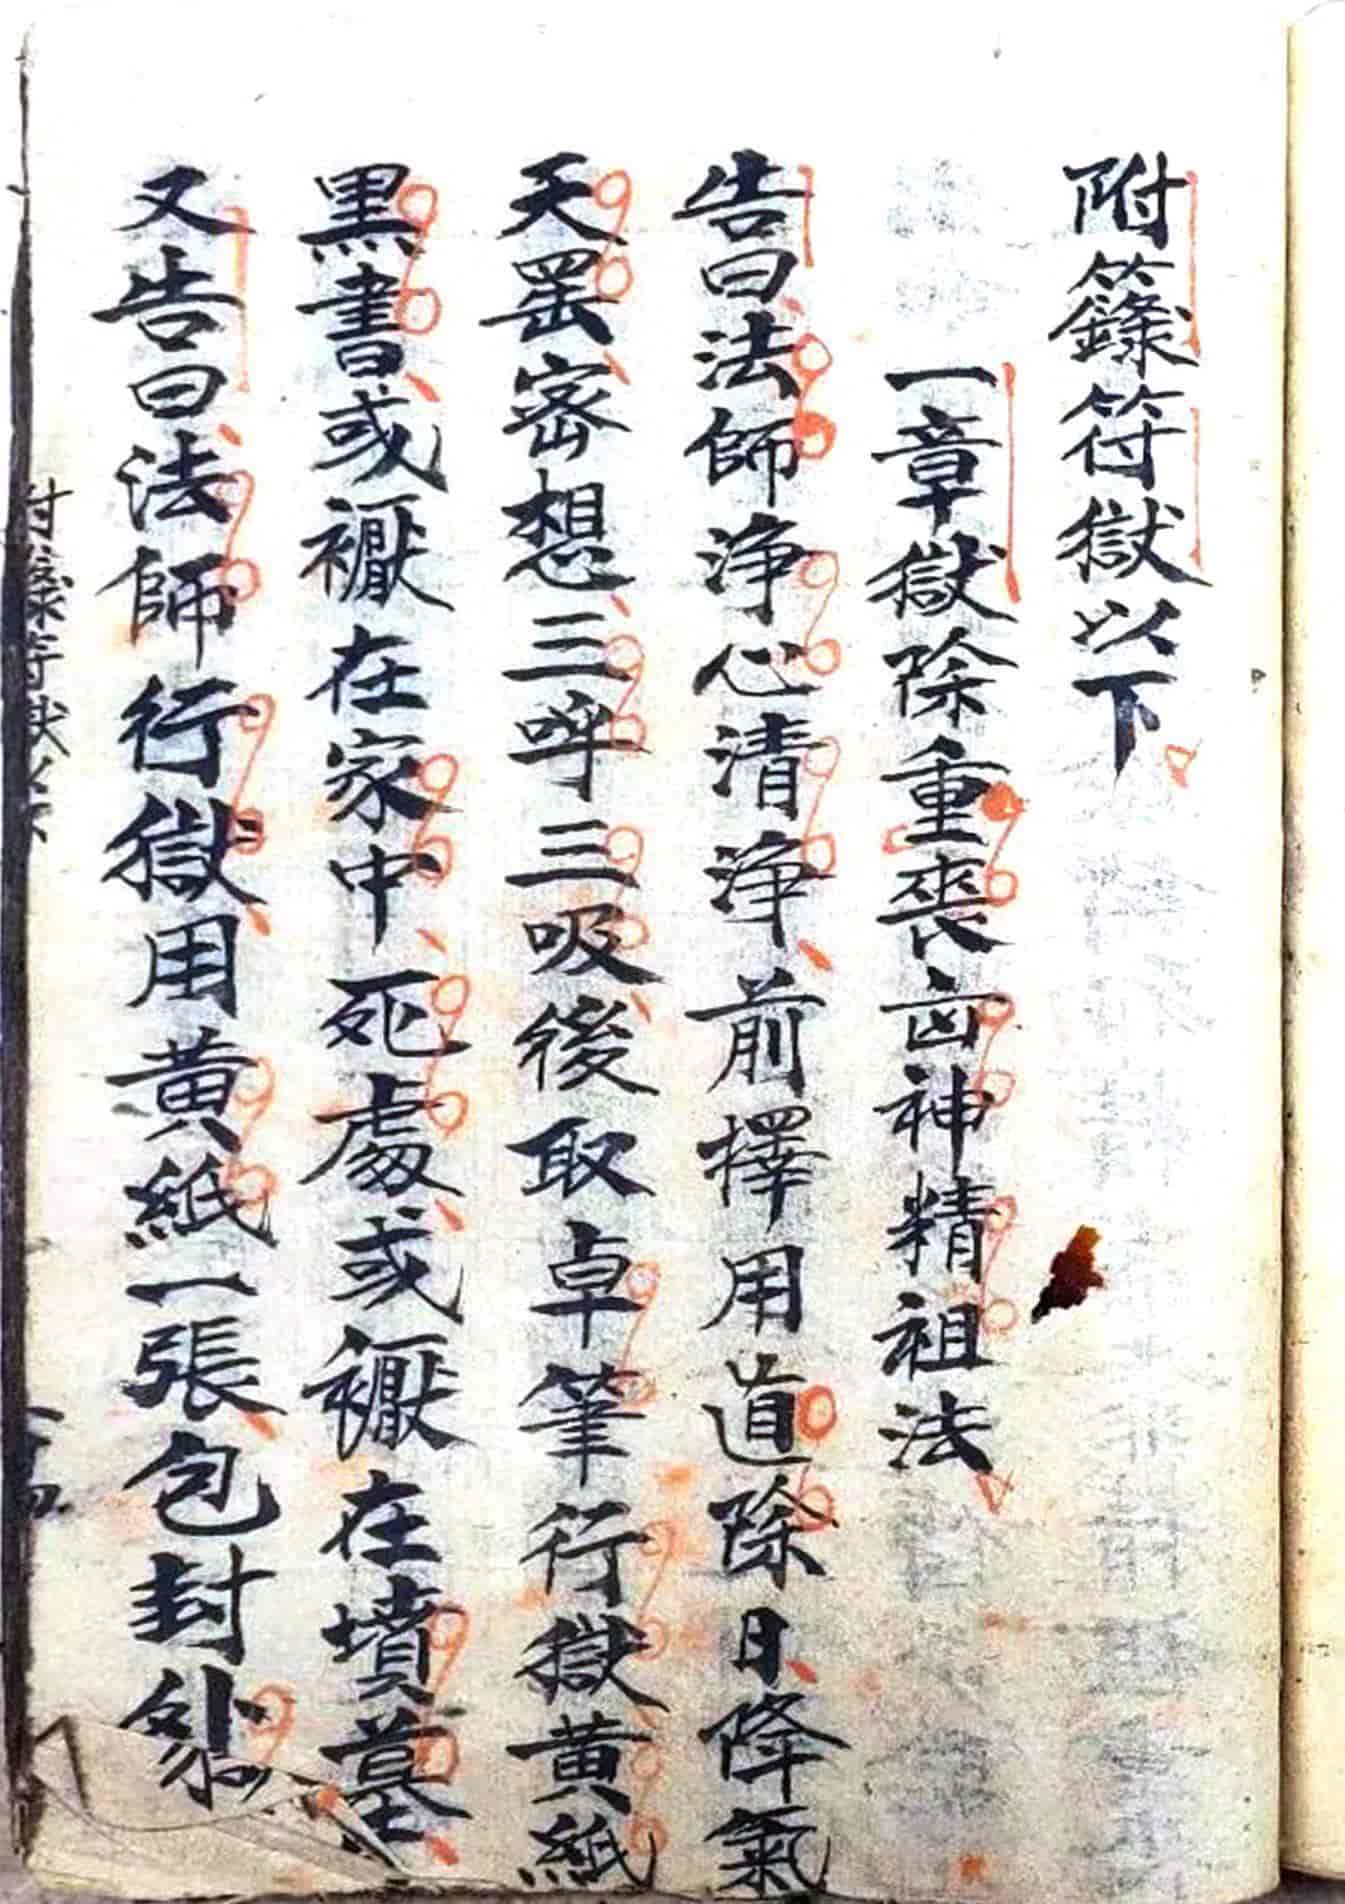 附籙符獄以下
一章獄除重喪㐫神精祖法
告曰法師浄心清浄前擇用道除日降氣
天罡密想三呼三吸後取卓筆行獄黃紙
黑書或在家中死處或在墳墓
又告曰法師行獄用黃紙一張包封外